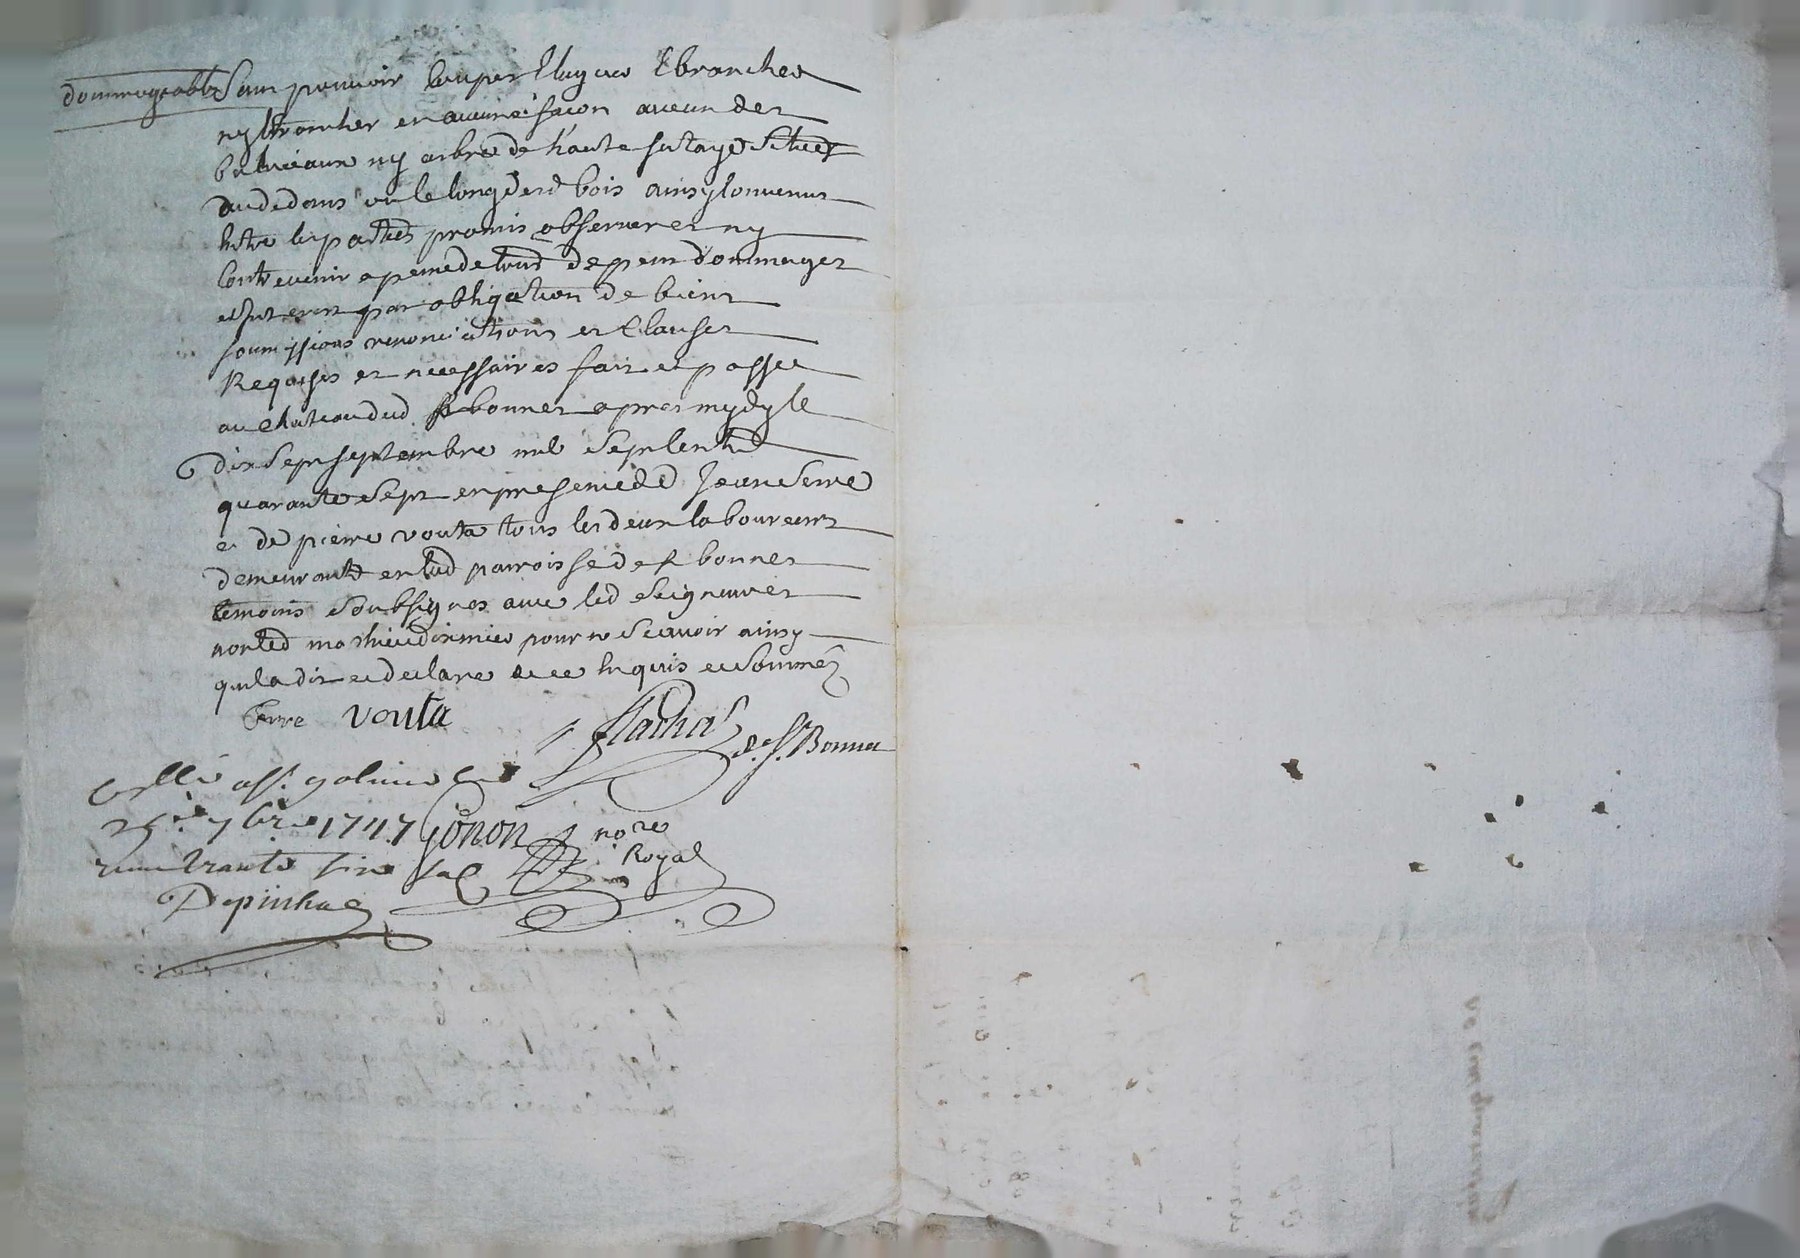 dommageable Sans pouvoir Couper Elaguer Ebrancher
ny trancher en aucune facon aucun des
baliveaux ny arbre de haute futaye Situés
audedans ou le long desd bois ainsy convenus
Entre les parties promis observer et ny
Contrevenir a peine de tous depens dommages
et interest par obligation de biens
soumissions renonciations et Clauses
Requises et necessaires fait et passé
au Chateau dud St bonnet apres mydy le
dix Sept septembre mil Sept Cent
quarante Sept en presence de Jean Serre
et de pierre vouta tous les deux laboureurs
demeurants en lad parroisse de St bonnet
temoins Soubsignes avec led Seigneur et
non led mathieu pour ne Scavoir ainsy
quil a dit et declare de ce Enquis et Sommé
Serre vouta
flachat de St Bonnet
1747 Gonon nore
Royal
Depinhac